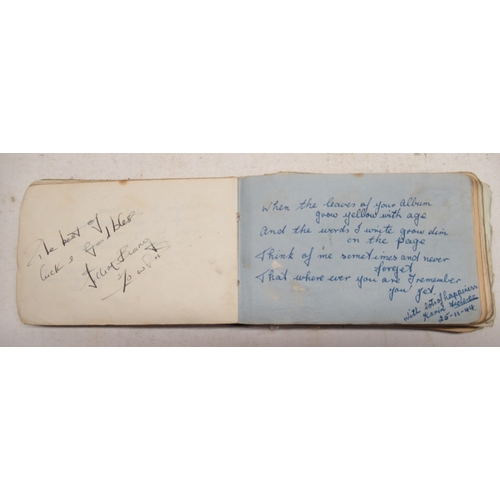 The best of
luck &
When the leaves of your Album
grow yellow with age
And the words I write grow dim
on the page
Think of me sometimes and never
forget
That where ever you are I remember
you yet
With lots of happiness
25-11-44